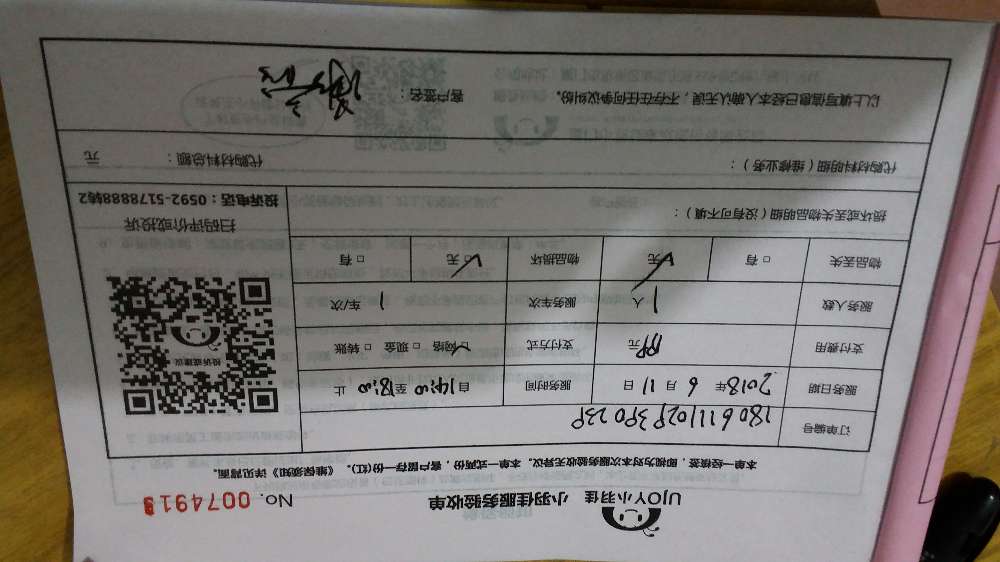 UJOY小羽佳 小羽佳服务验收单 No. 0074919
本单一经续签，即视为对本次服务验收无异议。本单一式两份，客户留存一份(红)。《维保须知》详见背面。
订单编号
服务日期 2018年 6月 11日 服务时间 自14:00至18:00止
支付费用 元 支付方式 ☑网络 □现金 □转账
服务人数 1人 服务车次 1车/次
物品丢失 □有 ☑无 物品损坏 ☑无 □有
投诉或建议
损坏或丢失物品明细（没有可不填）：
扫码评价或投诉
投诉电话：0592-5178888转2
代购材料明细（维修业务）： 代购材料总额： 元
以上填写信息已经本人确认无误，不存在任何争议纠纷。 客户签名：